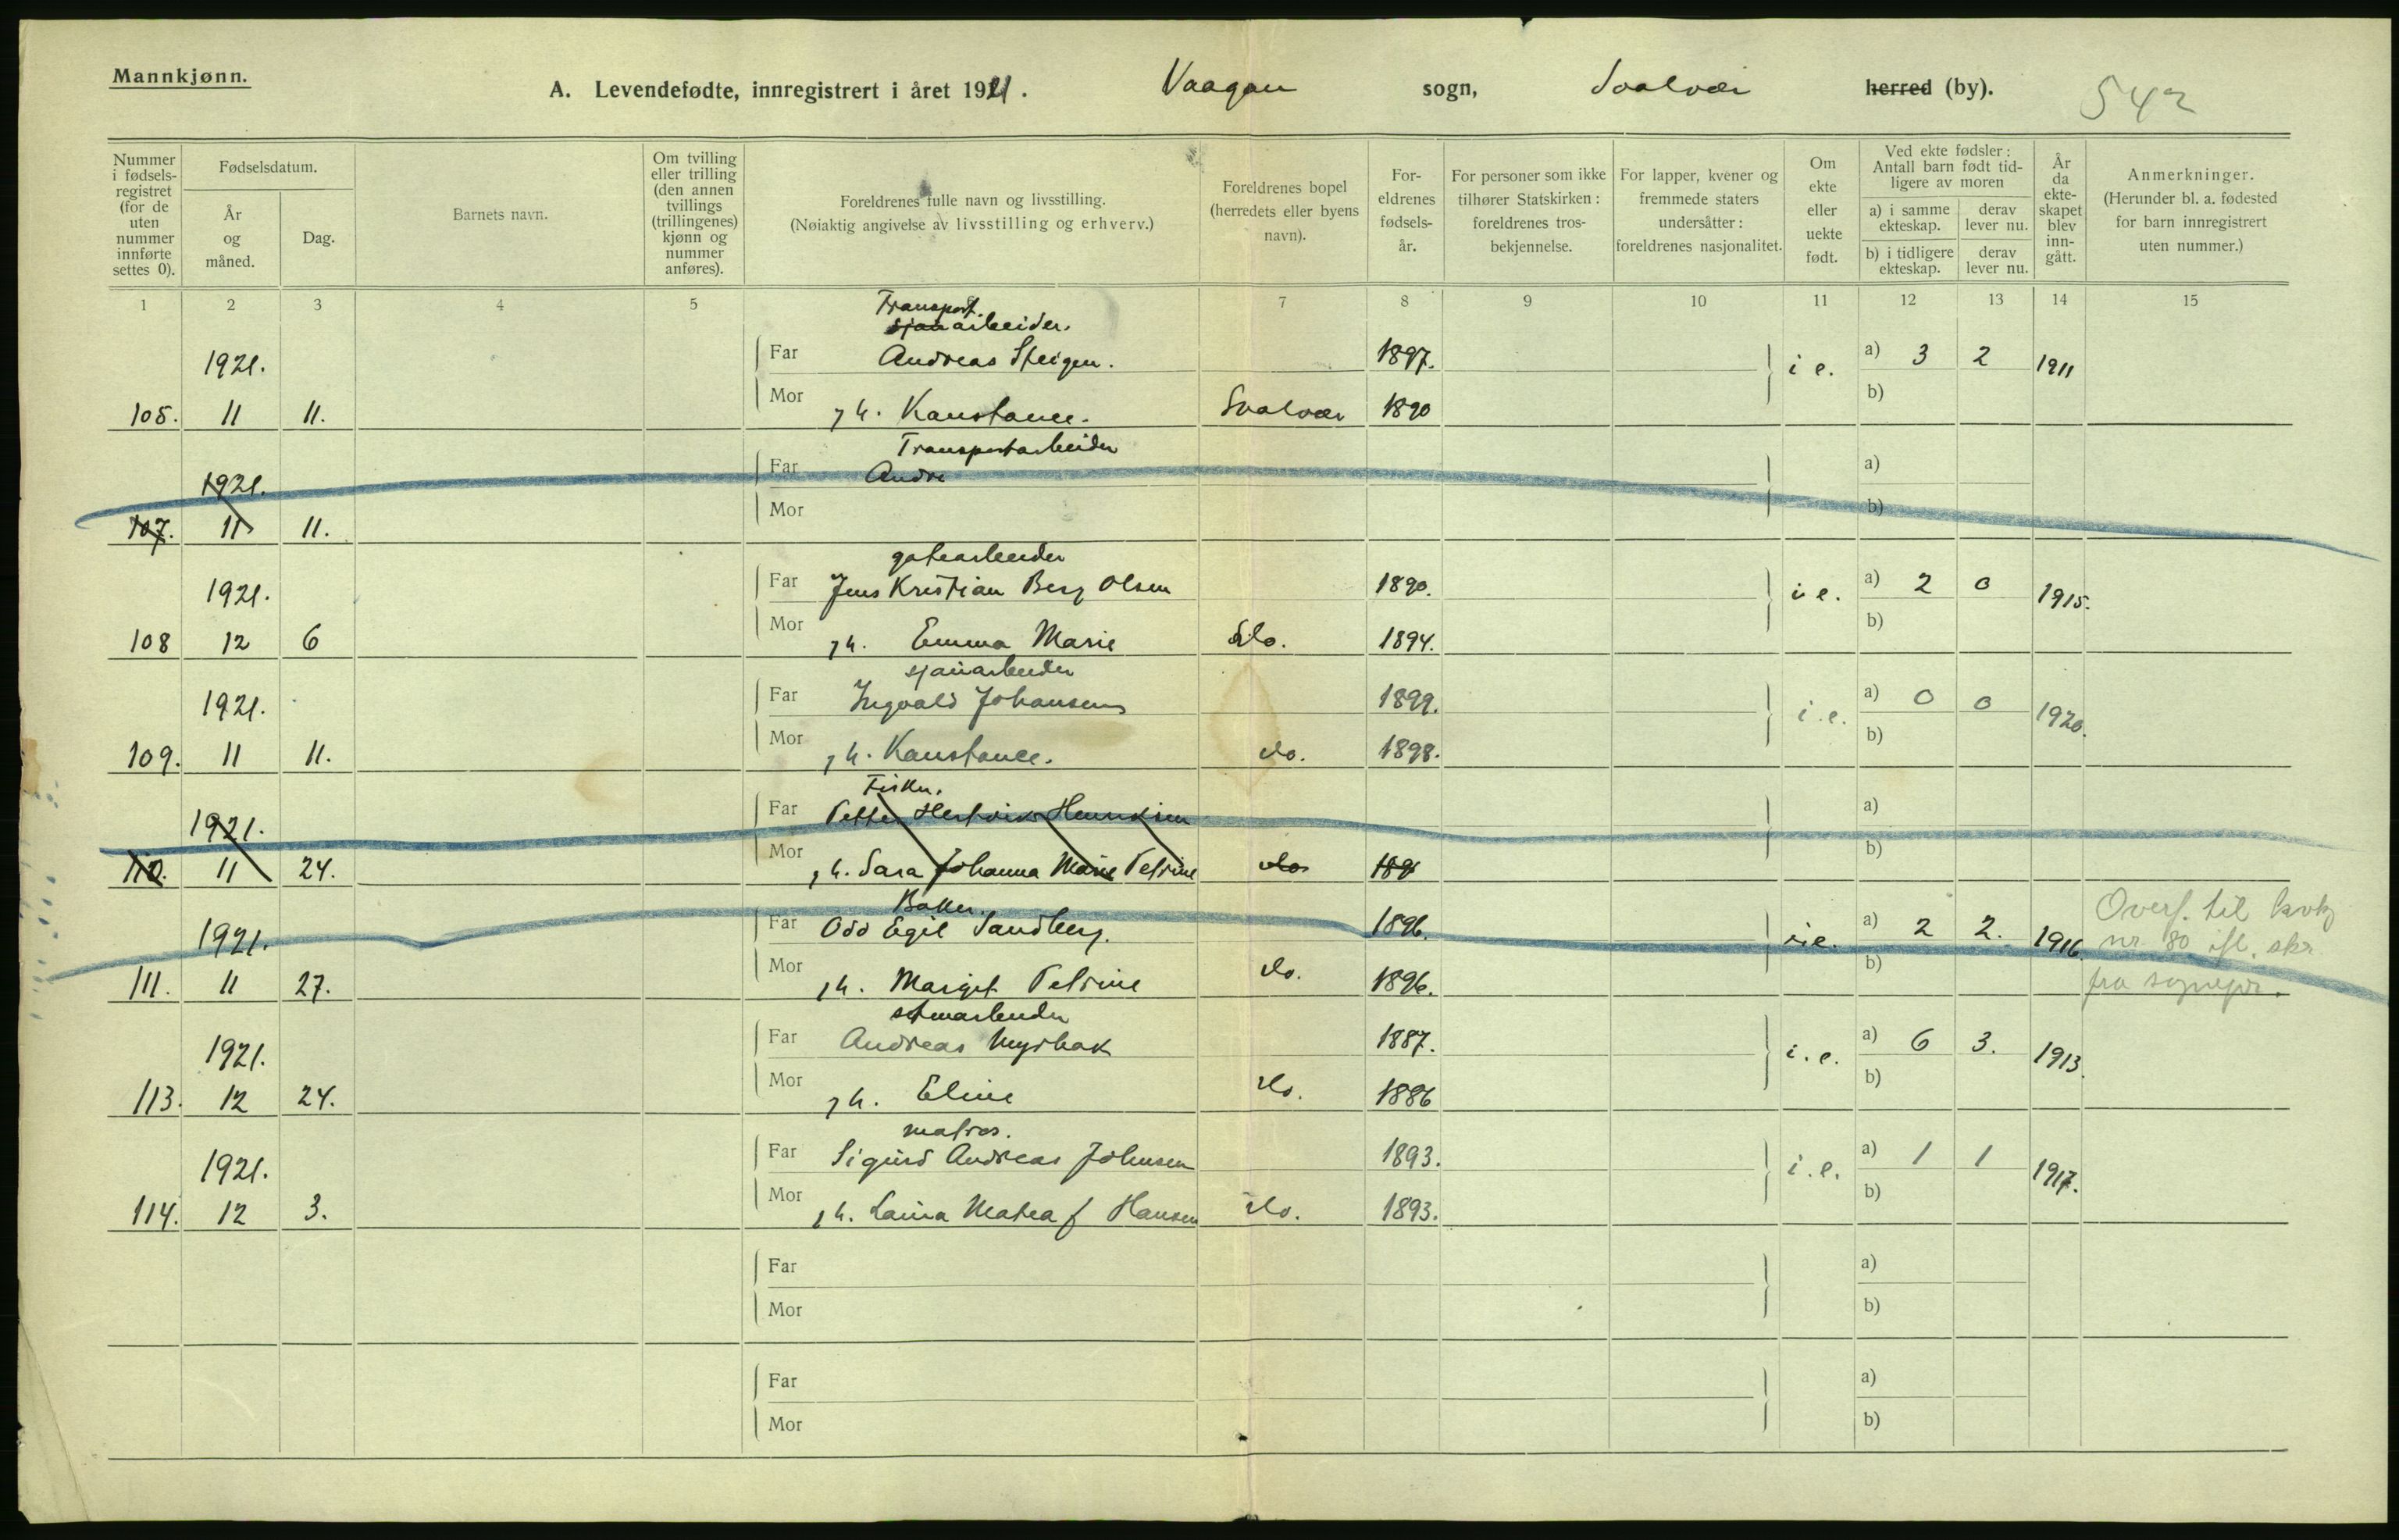 Mannkjønn.
A. Levendefødte, innregistrert i året 1921. Vaagan sogn, Svolvær herred (by). 542
Nummer i fødsels-registret (for de uten nummer innførte settes 0).
Fødselsdatum.
År og måned.
Dag.
Barnets navn.
Om tvilling eller trilling (den annen tvillings (trillingenes) kjønn og nummer anføres).
Foreldrenes fulle navn og livsstilling.
(Nøiaktig angivelse av livsstilling og erhverv.)
Foreldrenes bopel (herredets eller byens navn).
For-eldrenes fødsels-år.
For personer som ikke tilhører Statskirken: foreldrenes tros-bekjennelse.
For lapper, kvener og fremmede staters undersåtter: foreldrenes nasjonalitet.
Om ekte eller uekte født.
Ved ekte fødsler: Antall barn født tid-ligere av moren
a) i samme ekteskap.
derav lever nu.
b) i tidligere ekteskap.
derav lever nu.
År da ekte-skapet blev inn-gått.
Anmerkninger.
(Herunder bl. a. fødested for barn innregistrert uten nummer.)
1 2 3 4 5 7 8 9 10 11 12 13 14 15
Transport.
sjauarbeider.
1921. Far Andreas Steigen. 1897. i e. a) 3 2 1911
105. 11 11. Mor h. Konstance. Svolvær 1890 b)
Transportarbeider
1921. Far Andre a)
107. 11 11. Mor b)
gatearbeider
1921. Far Jens Kristian Berg Olsen 1890. i e. a) 2 0 1915.
108 12 6 Mor h. Emma Marie do. 1894. b)
sjauarbeider
1921. Far Ingvald Johansen 1899. i.e. a) 0 0 1920.
109. 11 11. Mor h. Konstance. do. 1898. b)
Fisker.
1921. Far Petter Hartvik Henriksen a)
110. 11 24. Mor h. Sara Johanna Marie Petrine do 189 b)
Baker.
1921. Far Odd Egil Sandberg. 1896. i.e. a) 2 2. 1916. Overf. til kvkj nr 80 ifl. skr fra sognepr.
111. 11 27. Mor h. Margit Petrine do. 1896. b)
1921. Far Andreas Myrbak 1887. i.e. a) 6 3. 1913.
113. 12 24. Mor h. Eline do. 1886 b)
matros.
1921. Far Sigurd Andreas Johnsen 1893. i.e. a) 1 1 1917.
114. 12 3. Mor h. Laura Matea f Hansen do. 1893. b)
Far a)
Mor b)
Far a)
Mor b)